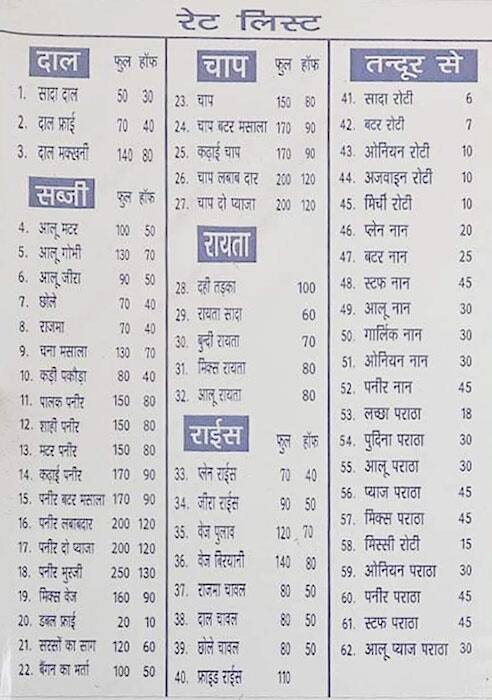 रेट लिस्ट
दाल फुल हॉफ
1. सादा दाल 50 30
2. दाल फ्राई 70 40
3. दाल मक्खनी 140 80
सब्जी फुल हॉफ
4. आलू मटर 100 50
5. आलू गोभी 130 70
6. आलू जीरा 90 50
7. छोले 70 40
8. राजमा 70 40
9. चना मसाला 130 70
10. कड़ी पकौड़ा 80 40
11. पालक पनीर 150 80
12. शाही पनीर 150 80
13. मटर पनीर 150 80
14. कढ़ाई पनीर 170 90
15. पनीर बटर मसाला 170 90
16. पनीर लबाबदार 200 120
17. पनीर दो प्याजा 200 120
18. पनीर भुरजी 250 130
19. मिक्स वेज 160 90
20. डबल फ्राई 20 10
21. सरसों का साग 120 60
22. बैंगन का भर्ता 100 50
चाप फुल हॉफ
23. चाप 150 80
24. चाप बटर मसाला 170 90
25. कढ़ाई चाप 170 90
26. चाप लबाब दार 200 120
27. चाप दो प्याजा 200 120
रायता
28. दही तड़का 100
29. रायता सादा 60
30. बुन्दी रायता 70
31. मिक्स रायता 80
32. आलू रायता 80
राईस फुल हॉफ
33. प्लेन राईस 70 40
34. जीरा राईस 90 50
35. वेज पुलाव 120 70
36. वेज बिरयानी 140 80
37. राजमा चावल 80 50
38. दाल चावल 80 50
39. छोले चावल 80 50
40. फ्राइड राईस 110
तन्दूर से
41. सादा रोटी 6
42. बटर रोटी 7
43. ओनियन रोटी 10
44. अजवाइन रोटी 10
45. मिर्ची रोटी 10
46. प्लेन नान 20
47. बटर नान 25
48. स्टफ नान 45
49. आलू नान 30
50. गार्लिक नान 30
51. ओनियन नान 30
52. पनीर नान 45
53. लच्छा पराठा 18
54. पुदिना पराठा 30
55. आलू पराठा 30
56. प्याज पराठा 45
57. मिक्स पराठा 45
58. मिस्सी रोटी 15
59. ओनियन पराठा 30
60. पनीर पराठा 45
61. स्टफ पराठा 45
62. आलू प्याज पराठा 30